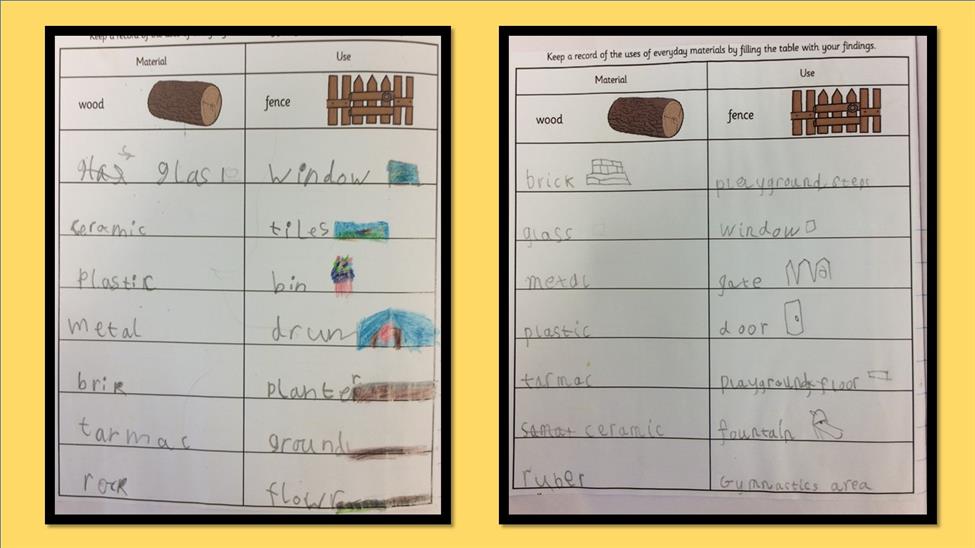 Material Use
wood fence
glass window
ceramic tiles
plastic bin
metal drum
brik planter
tarmac ground
rock flowr
Keep a record of the uses of everyday materials by filling the table with your findings.
Material Use
wood fence
brick playground steps
glass window
metal gate
plastic door
tarmac playground floor
ceramic fountain
ruber Gymnastics area